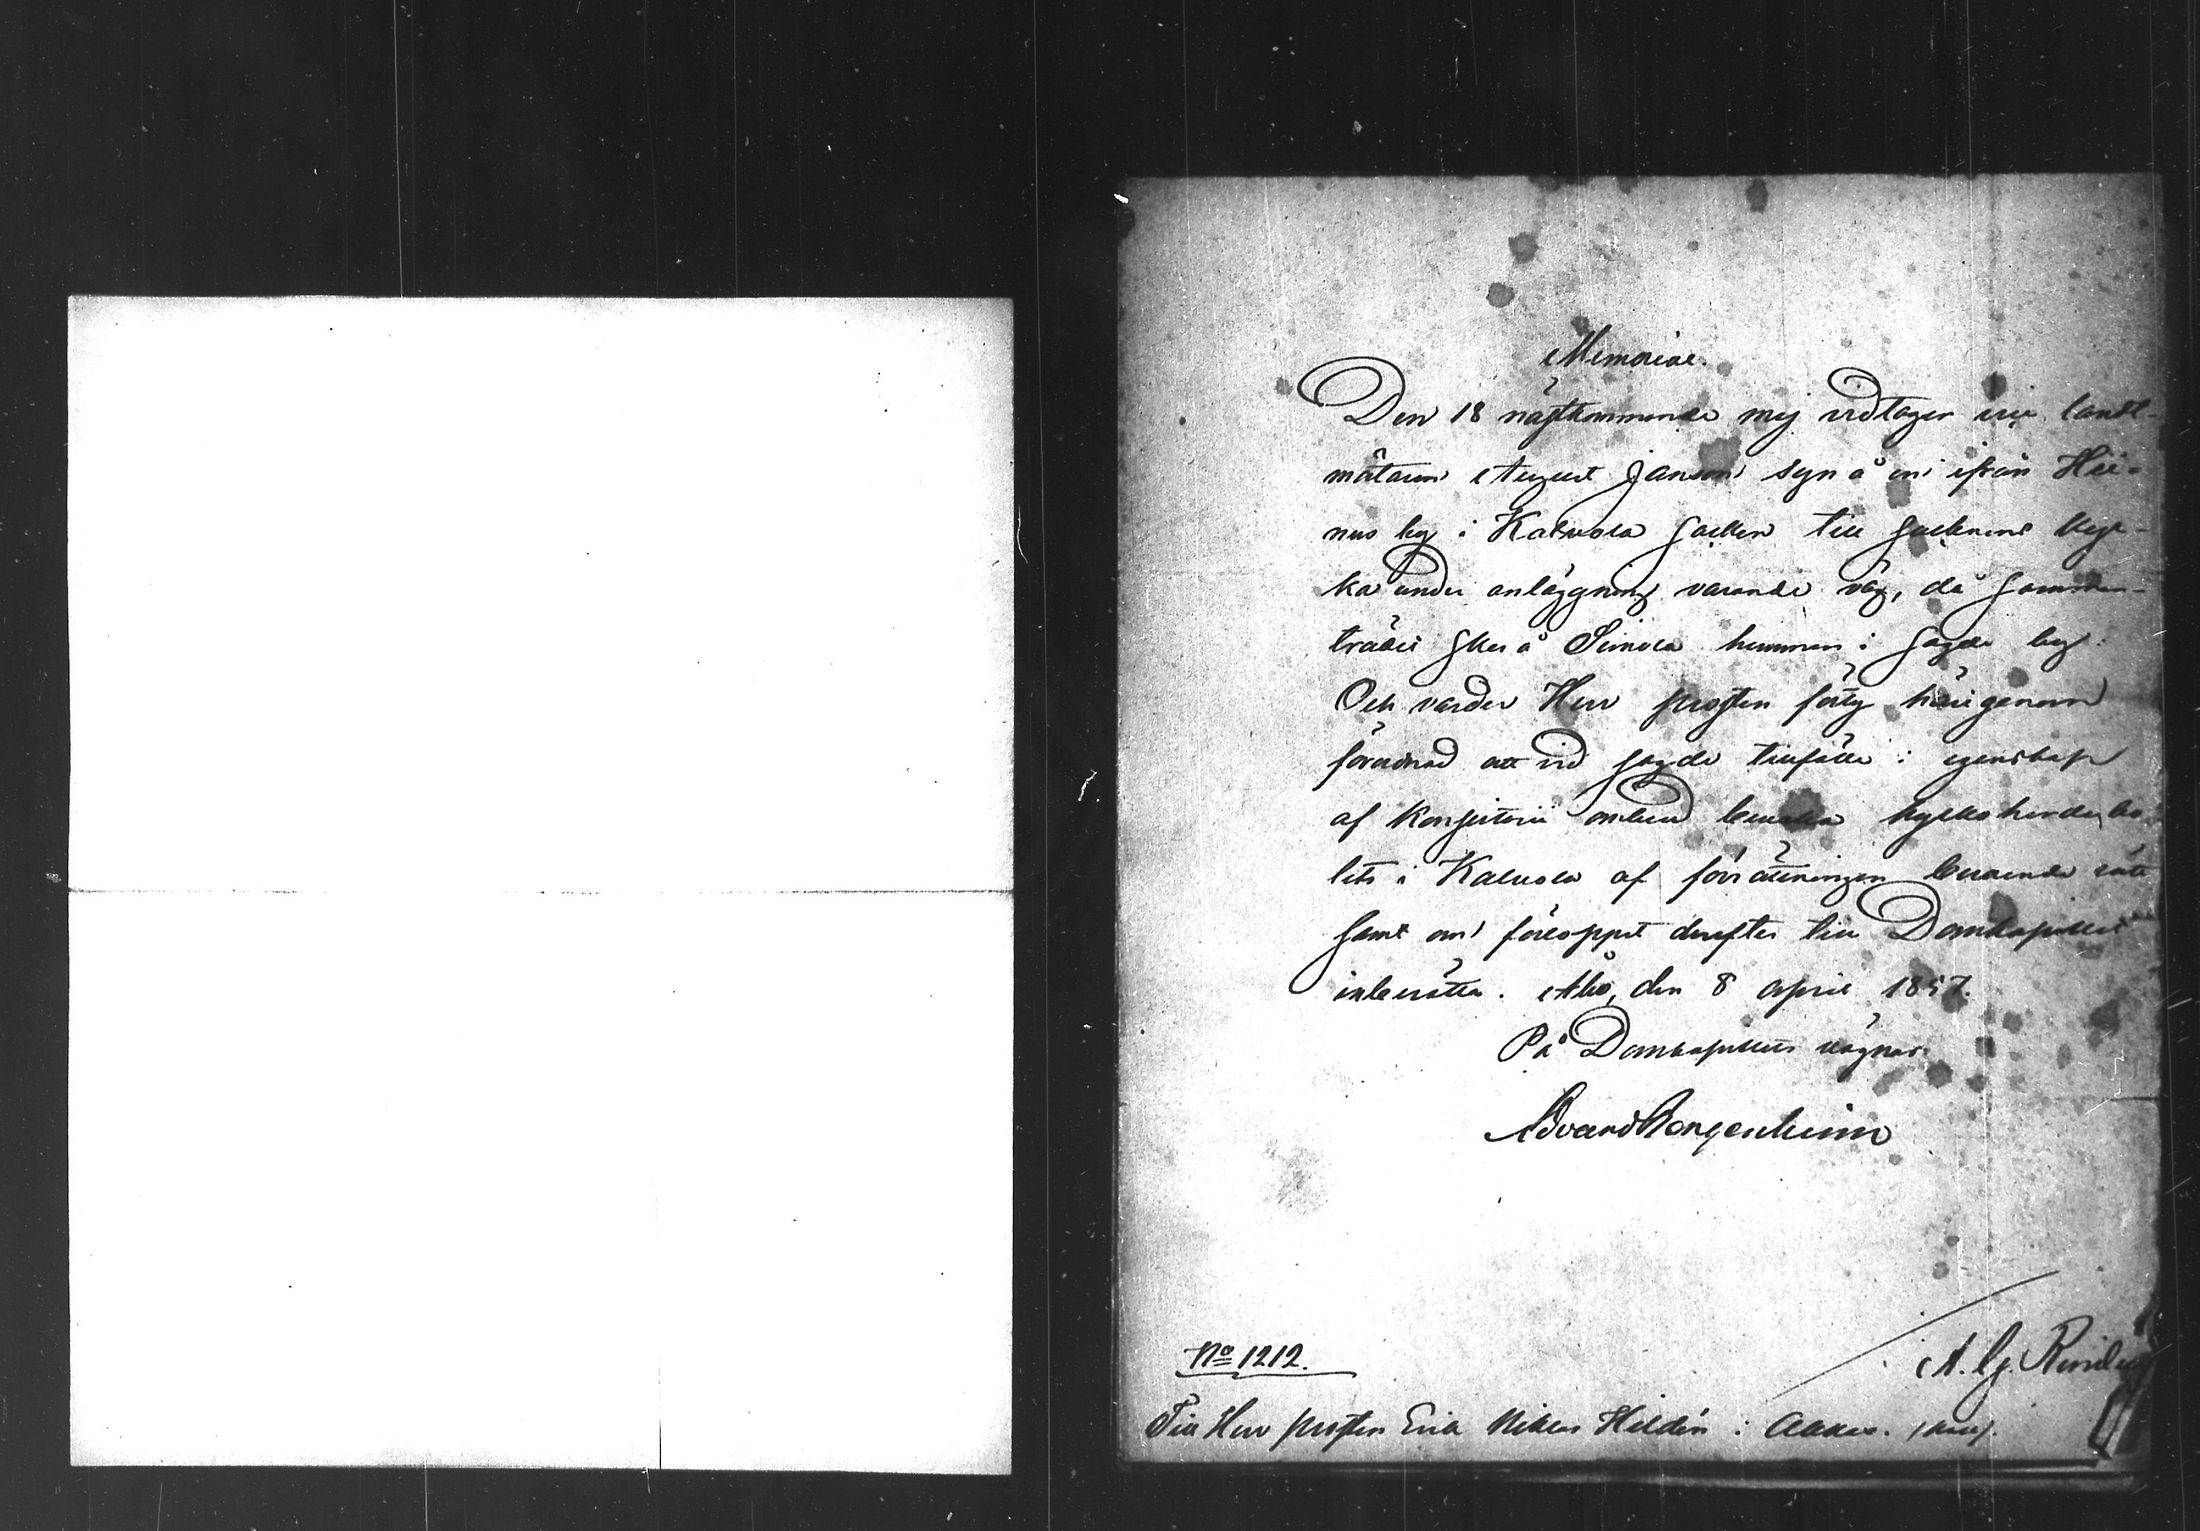 Memorial.
Den 18 nästkommande maj vidtager vice landt-
mätaren August Janson syn å en ifrån Hie-
nus by i Kalvola socken till socknens kyr-
ka under anläggning varande väg, då samman-
träde sker å Simola hemman i sagde by.
Och varder Herr prosten förty härigenom
förordnad att vid sagde tillfälle i egenskap
af Konsistorii ombud bevaka kyrkoherdebo-
lets i Kalvola af förrättningen beroende rätt
samt om förloppet derefter till Domkapitlet
inberätta. Åbo, den 8 april 1897.
På Domkapitlets vägnar:
Edvard Borgenheim
No 1212.
A. G.
Till Herr prosten Erik Niklas Heldén i Akkas.